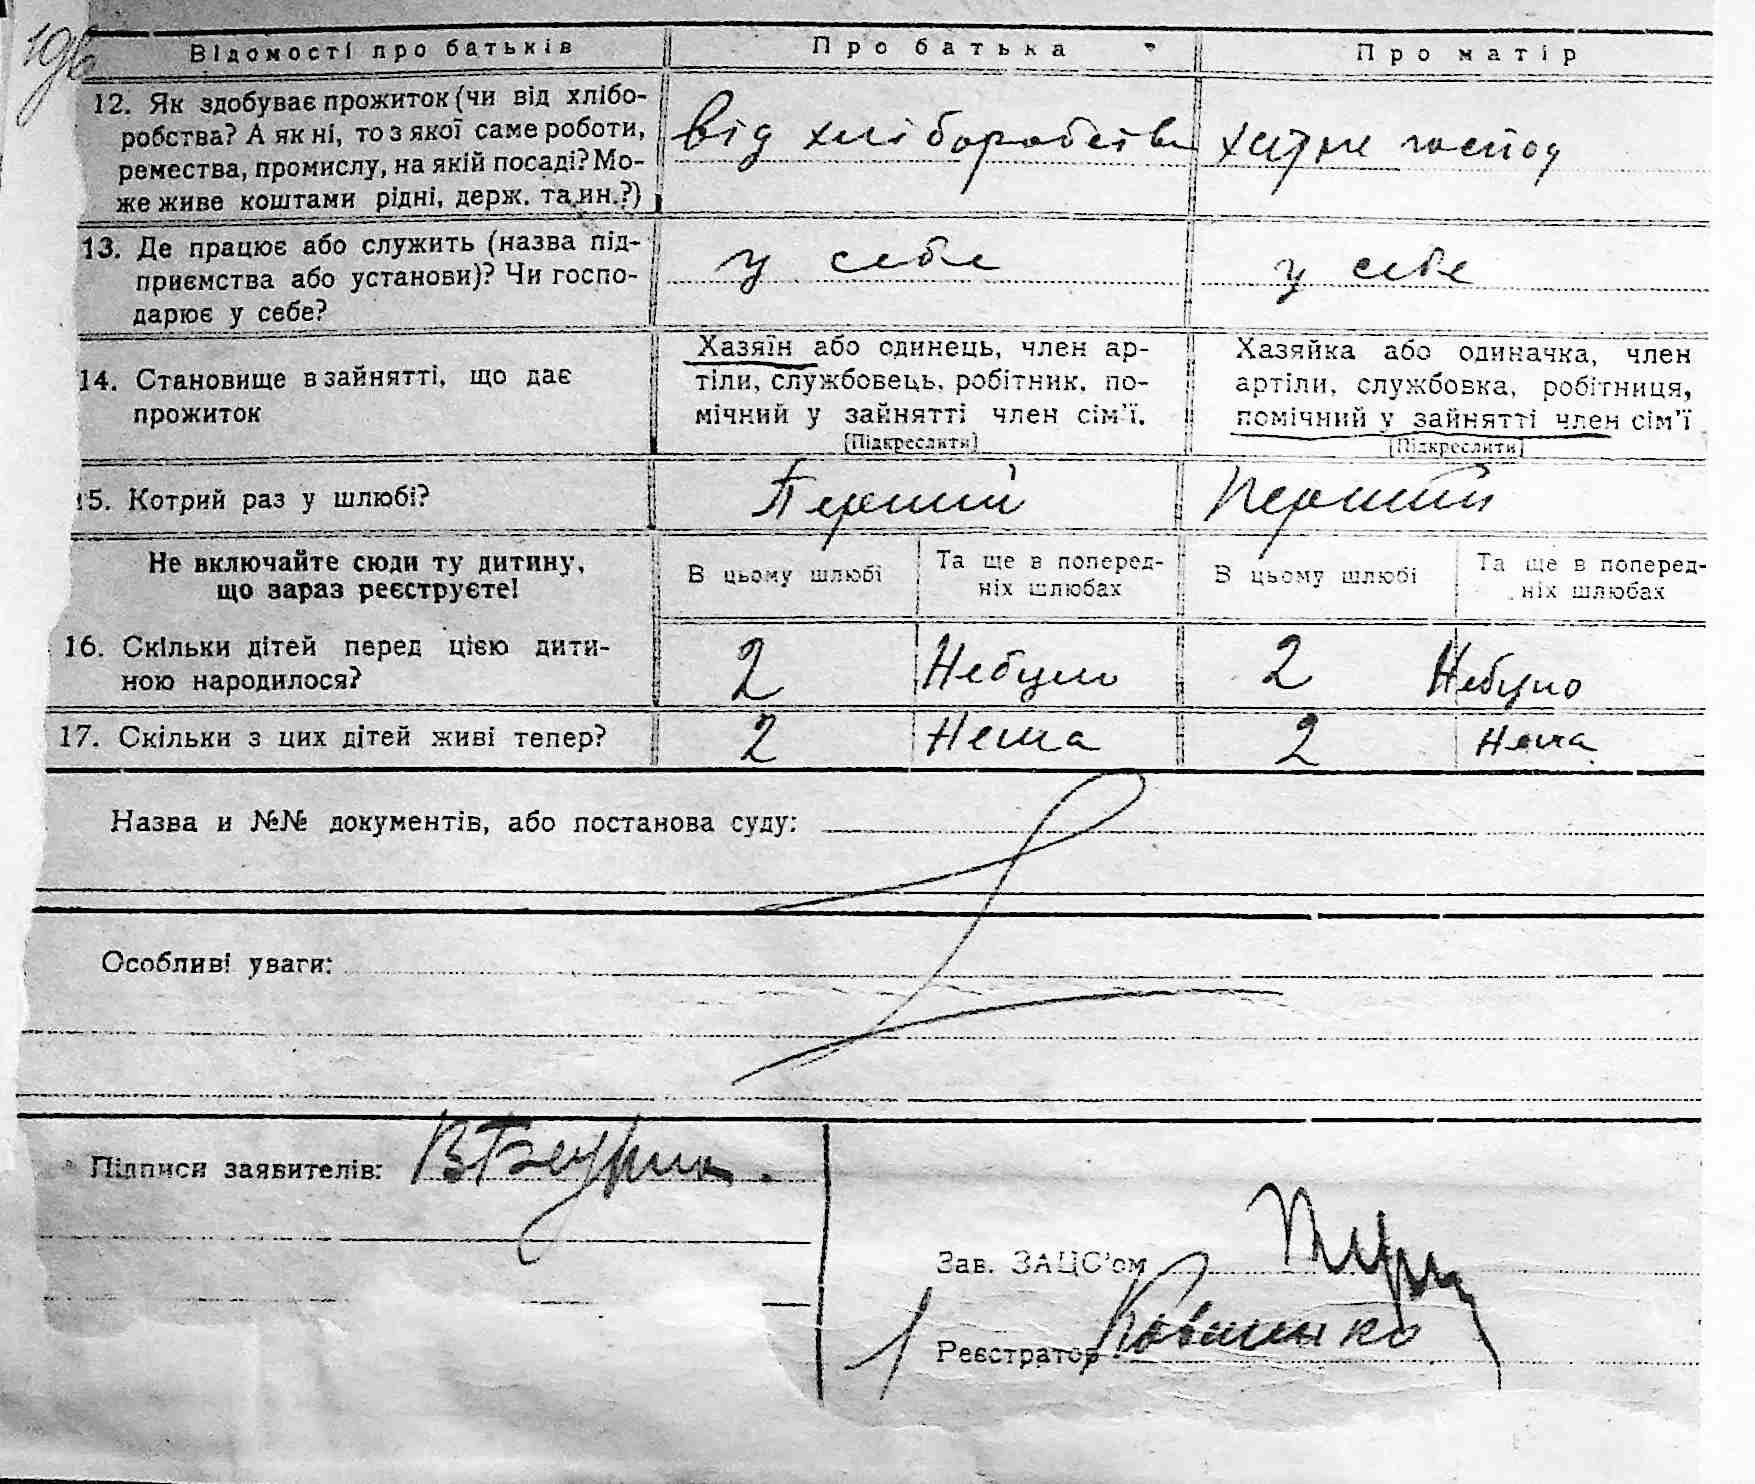 Відомості про батьків
Про батька
Про матір
12. Як здобуває прожиток (чи від хлібо-
робства? А як ні, то з якої саме роботи,
ремества, промислу, на якій посаді? Мо-
же живе коштами рідні, держ. та ин.?)
від хліборобства
хатнє господ
13. Де працює або служить (назва під-
приємства або установи)? Чи госпо-
дарює у себе?
у себе
у себе
14. Становище в зайнятті, що дає
прожиток
Хазяїн або одинець, член ар-
тіли, службовець, робітник, по-
мічний у зайнятті член сім'ї.
[Підкреслити]
Хазяйка або одиначка, член
артіли, службовка, робітниця,
помічний у зайнятті член сім'ї
[Підкреслити]
15. Котрий раз у шлюбі?
Перший
Перший
Не включайте сюди ту дитину,
що зараз реєструєте!
В цьому шлюбі
Та ще в поперед-
ніх шлюбах
В цьому шлюбі
Та ще в поперед-
ніх шлюбах
16. Скільки дітей перед цією дити-
ною народилося?
2
Небуло
2
Небуло
17. Скільки з цих дітей живі тепер?
2
Нема
2
Нема
Назва и №№ документів, або постанова суду:
Особливі уваги:
Підписи заявителів:
Зав. ЗАЦС'ом
Реєстратор